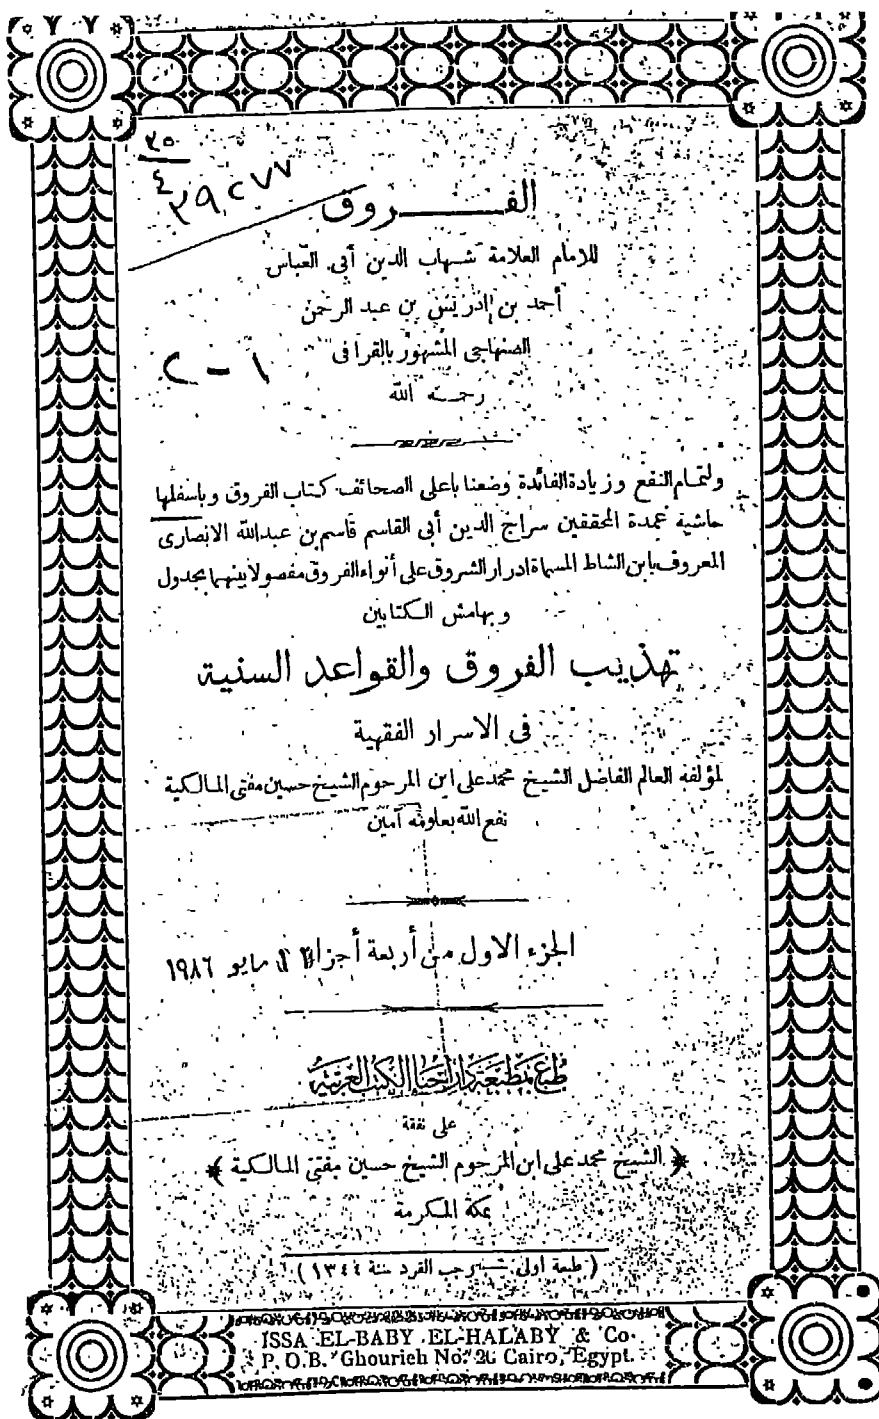 ٢٥
٤
٢٩٢٧٧
الفـــــــروق
للامام العلامة شهاب الدين أبى العباس
أحمد بن إدريس بن عبد الرحمن
الصنهاجى المشهور بالقرافى
رحمـه الله
١ - ٢
ولتمـام النفع وزيادة الفائدة وضعنا باعلى الصحائف كتاب الفروق وباسفلها
حاشية عمدة المحققين سراج الدين أبى القاسم قاسم بن عبدالله الانصارى
المعروف بابن الشاط المسماة ادرار الشروق على أنواء الفروق مفصولا بينهما بجدول
وبهامش الـكتابين
تهذيب الفروق والقواعد السنية
فى الاسرار الفقهية
لمؤلفه العالم الفاضل الشيخ محمد على ابن المرحوم الشيخ حسين مفتى المـالـكية
نفع الله بعلومه آمين
الجزء الاول من أربعة أجزاء مايو ١٩٨٦
طبع بمطبعة دار احياء الكتب العربية
على نفقة
﴿ الشيخ محمد على ابن المرحوم الشيخ حسين مفتى المـالـكية ﴾
بمكة المـكرمة
( طبعة أولى رجب الفرد سنة ١٣٤٤ )
ISSA EL-BABY EL-HALABY & Co.
P. O. B. Ghourieh No. 26 Cairo, Egypt.